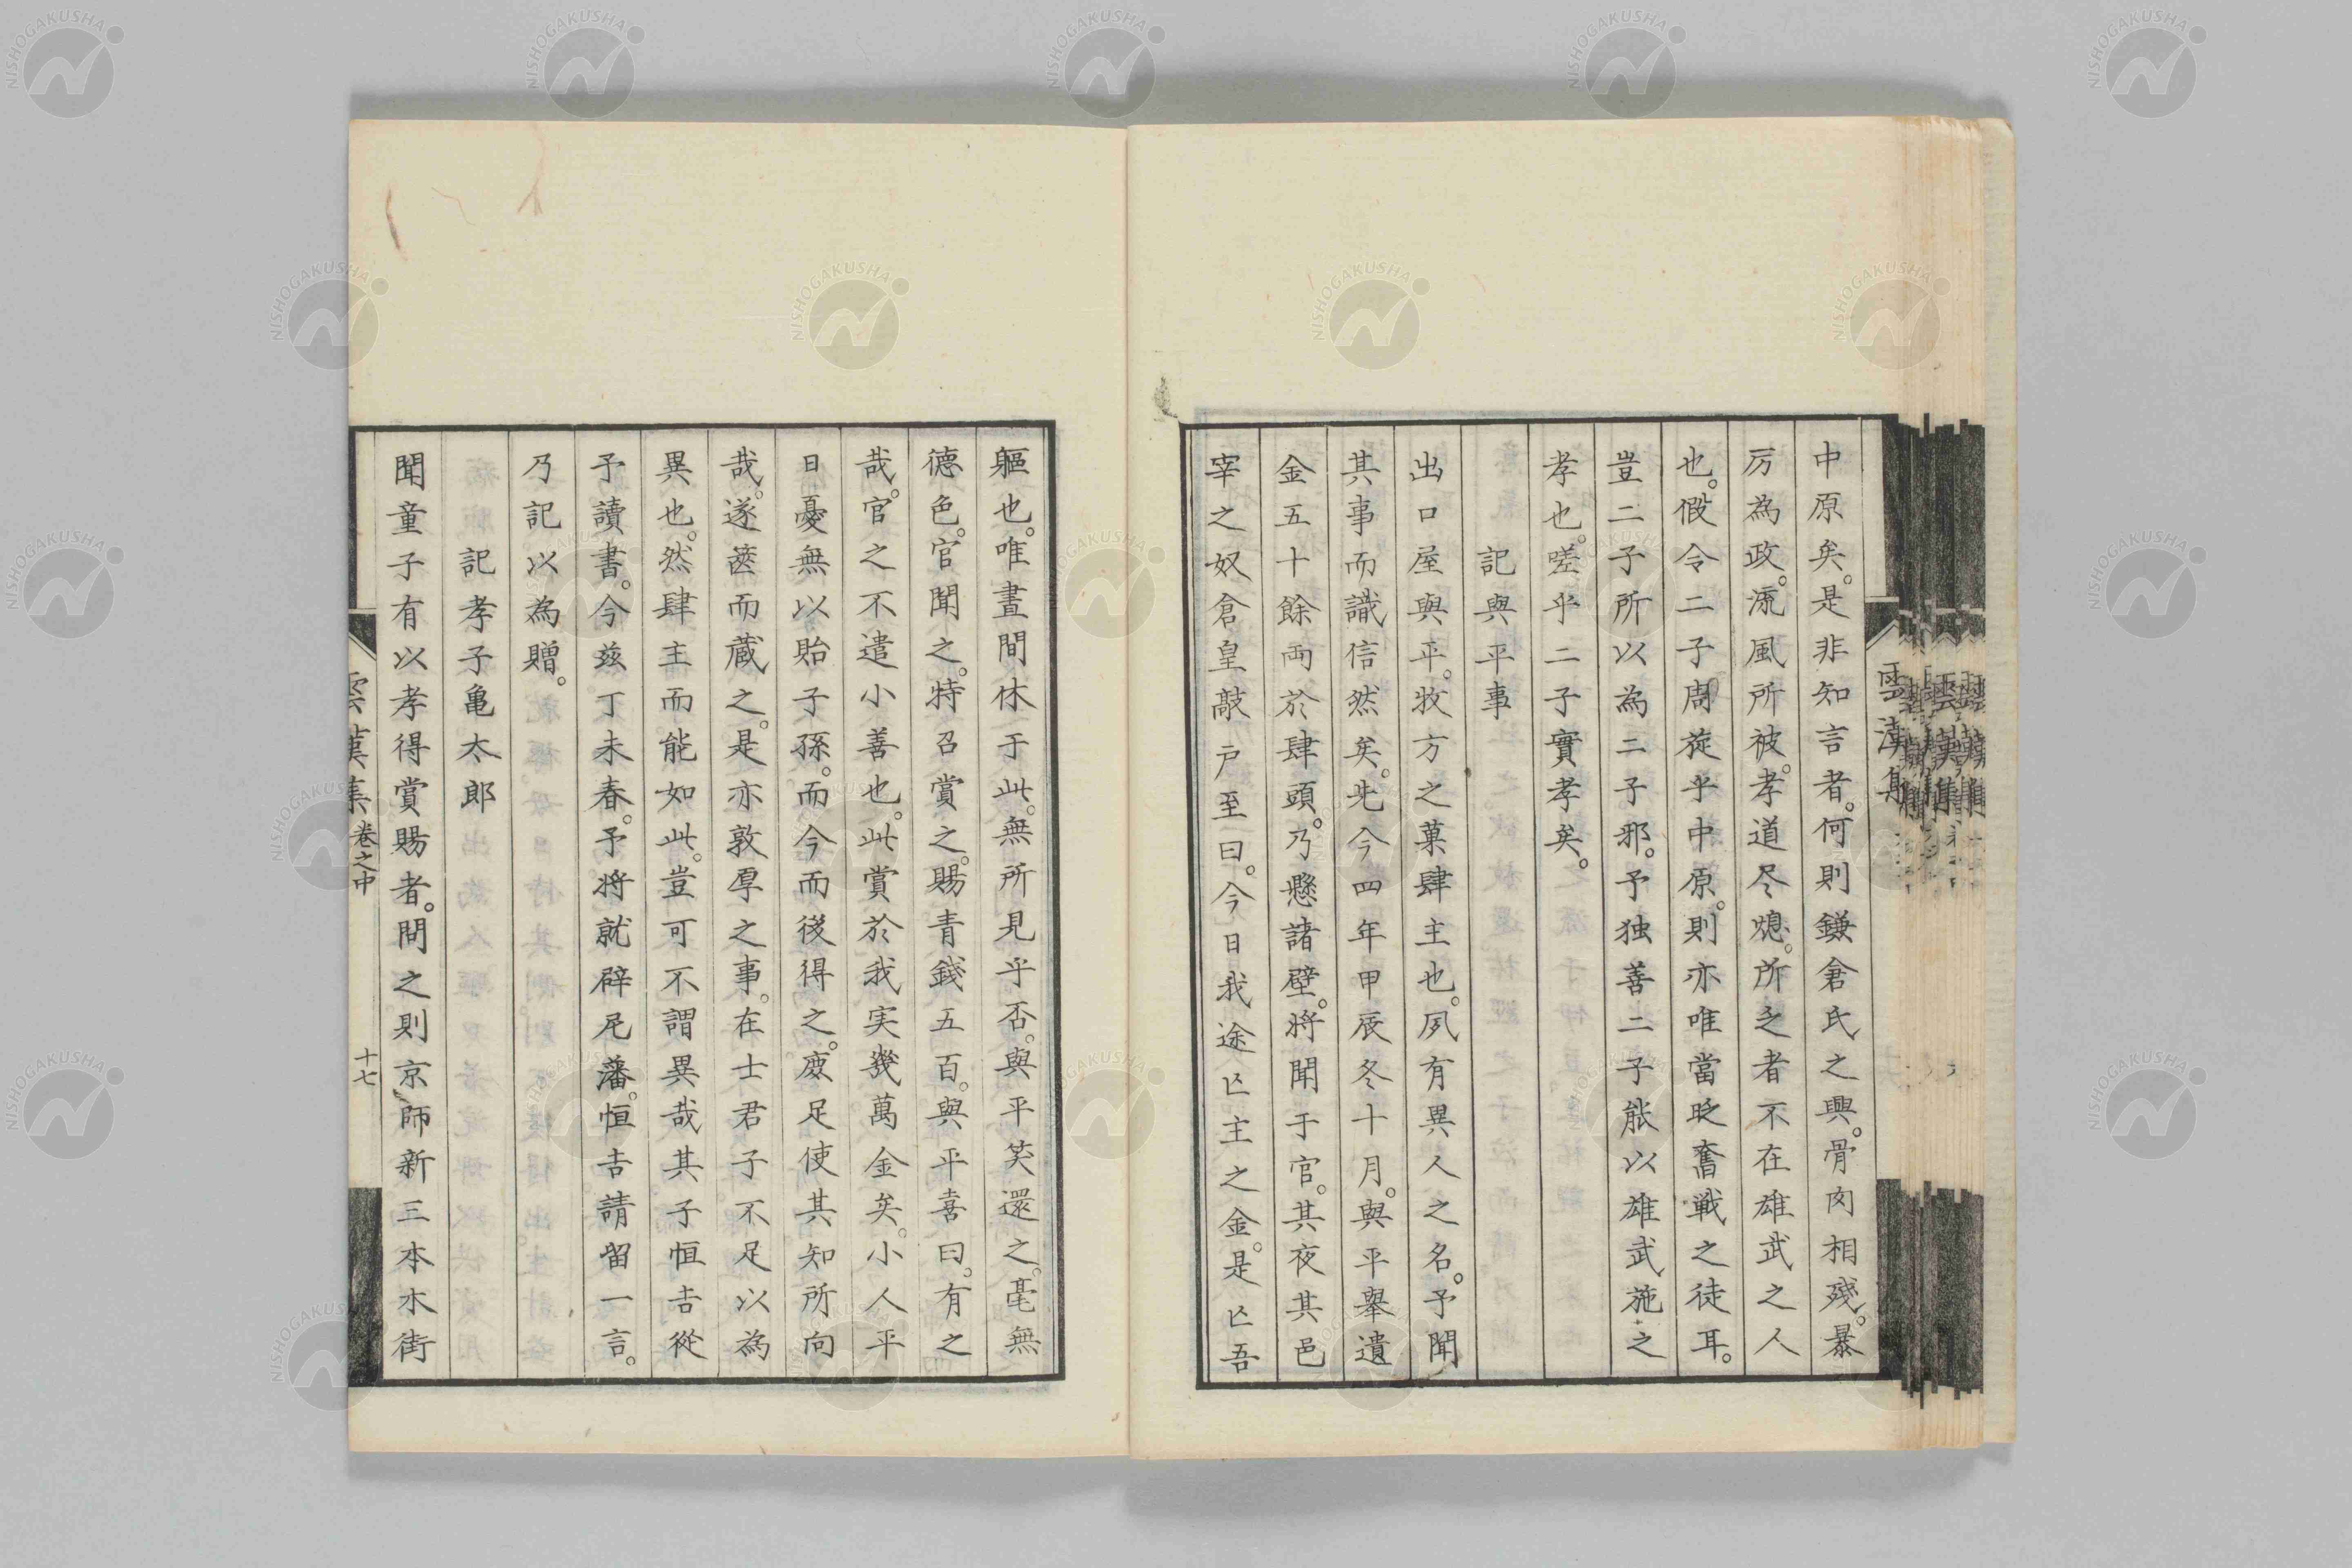 中原矣。是非知言者。何則鎌倉氏之興。骨肉相残。暴
厉為政。流風所被。孝道尽熄。所乏者不在雄武之人
也。假令二子周旋乎中原。則亦唯當眨奮戰之徒耳。
豈二子所以為二子邪。予独善二子能以雄武施之
孝也。嗟乎二子實孝矣。
記與平事
出口屋與平。牧方之菓肆主也。夙有異人之名。予聞
其事而識信然矣。先今四年甲辰冬十月。與平舉遺
金五十餘両於肆頭。乃懸諸壁。將聞于官。其夜其邑
宰之奴倉皇敲戸至曰。今日我途亡主之金。是亡吾
軀也。唯晝間休于此。無所見乎否。與平笑還之。毫無
德色。官聞之。特召賞之。賜青錢五百。與平喜曰。有之
哉。官之不遣小善也。此賞於我実幾萬金矣。小人平
日憂無以貽子孫。而今而後得之。庶足使其知所向
哉。遂篋而蔵之。是亦敦厚之事。在士君子不足以為
異也。然肆主而能如此。豈可不謂異哉其子恒吉從
予讀書。今茲丁未春。予將就辟尼藩。恒吉請留一言。
乃記以為贈。
記孝子亀太郎
聞童子有以孝得賞賜者。問之則京師新三本木街
雲漢集 卷之中 十七
雲漢集
NISHOGAKUSHA